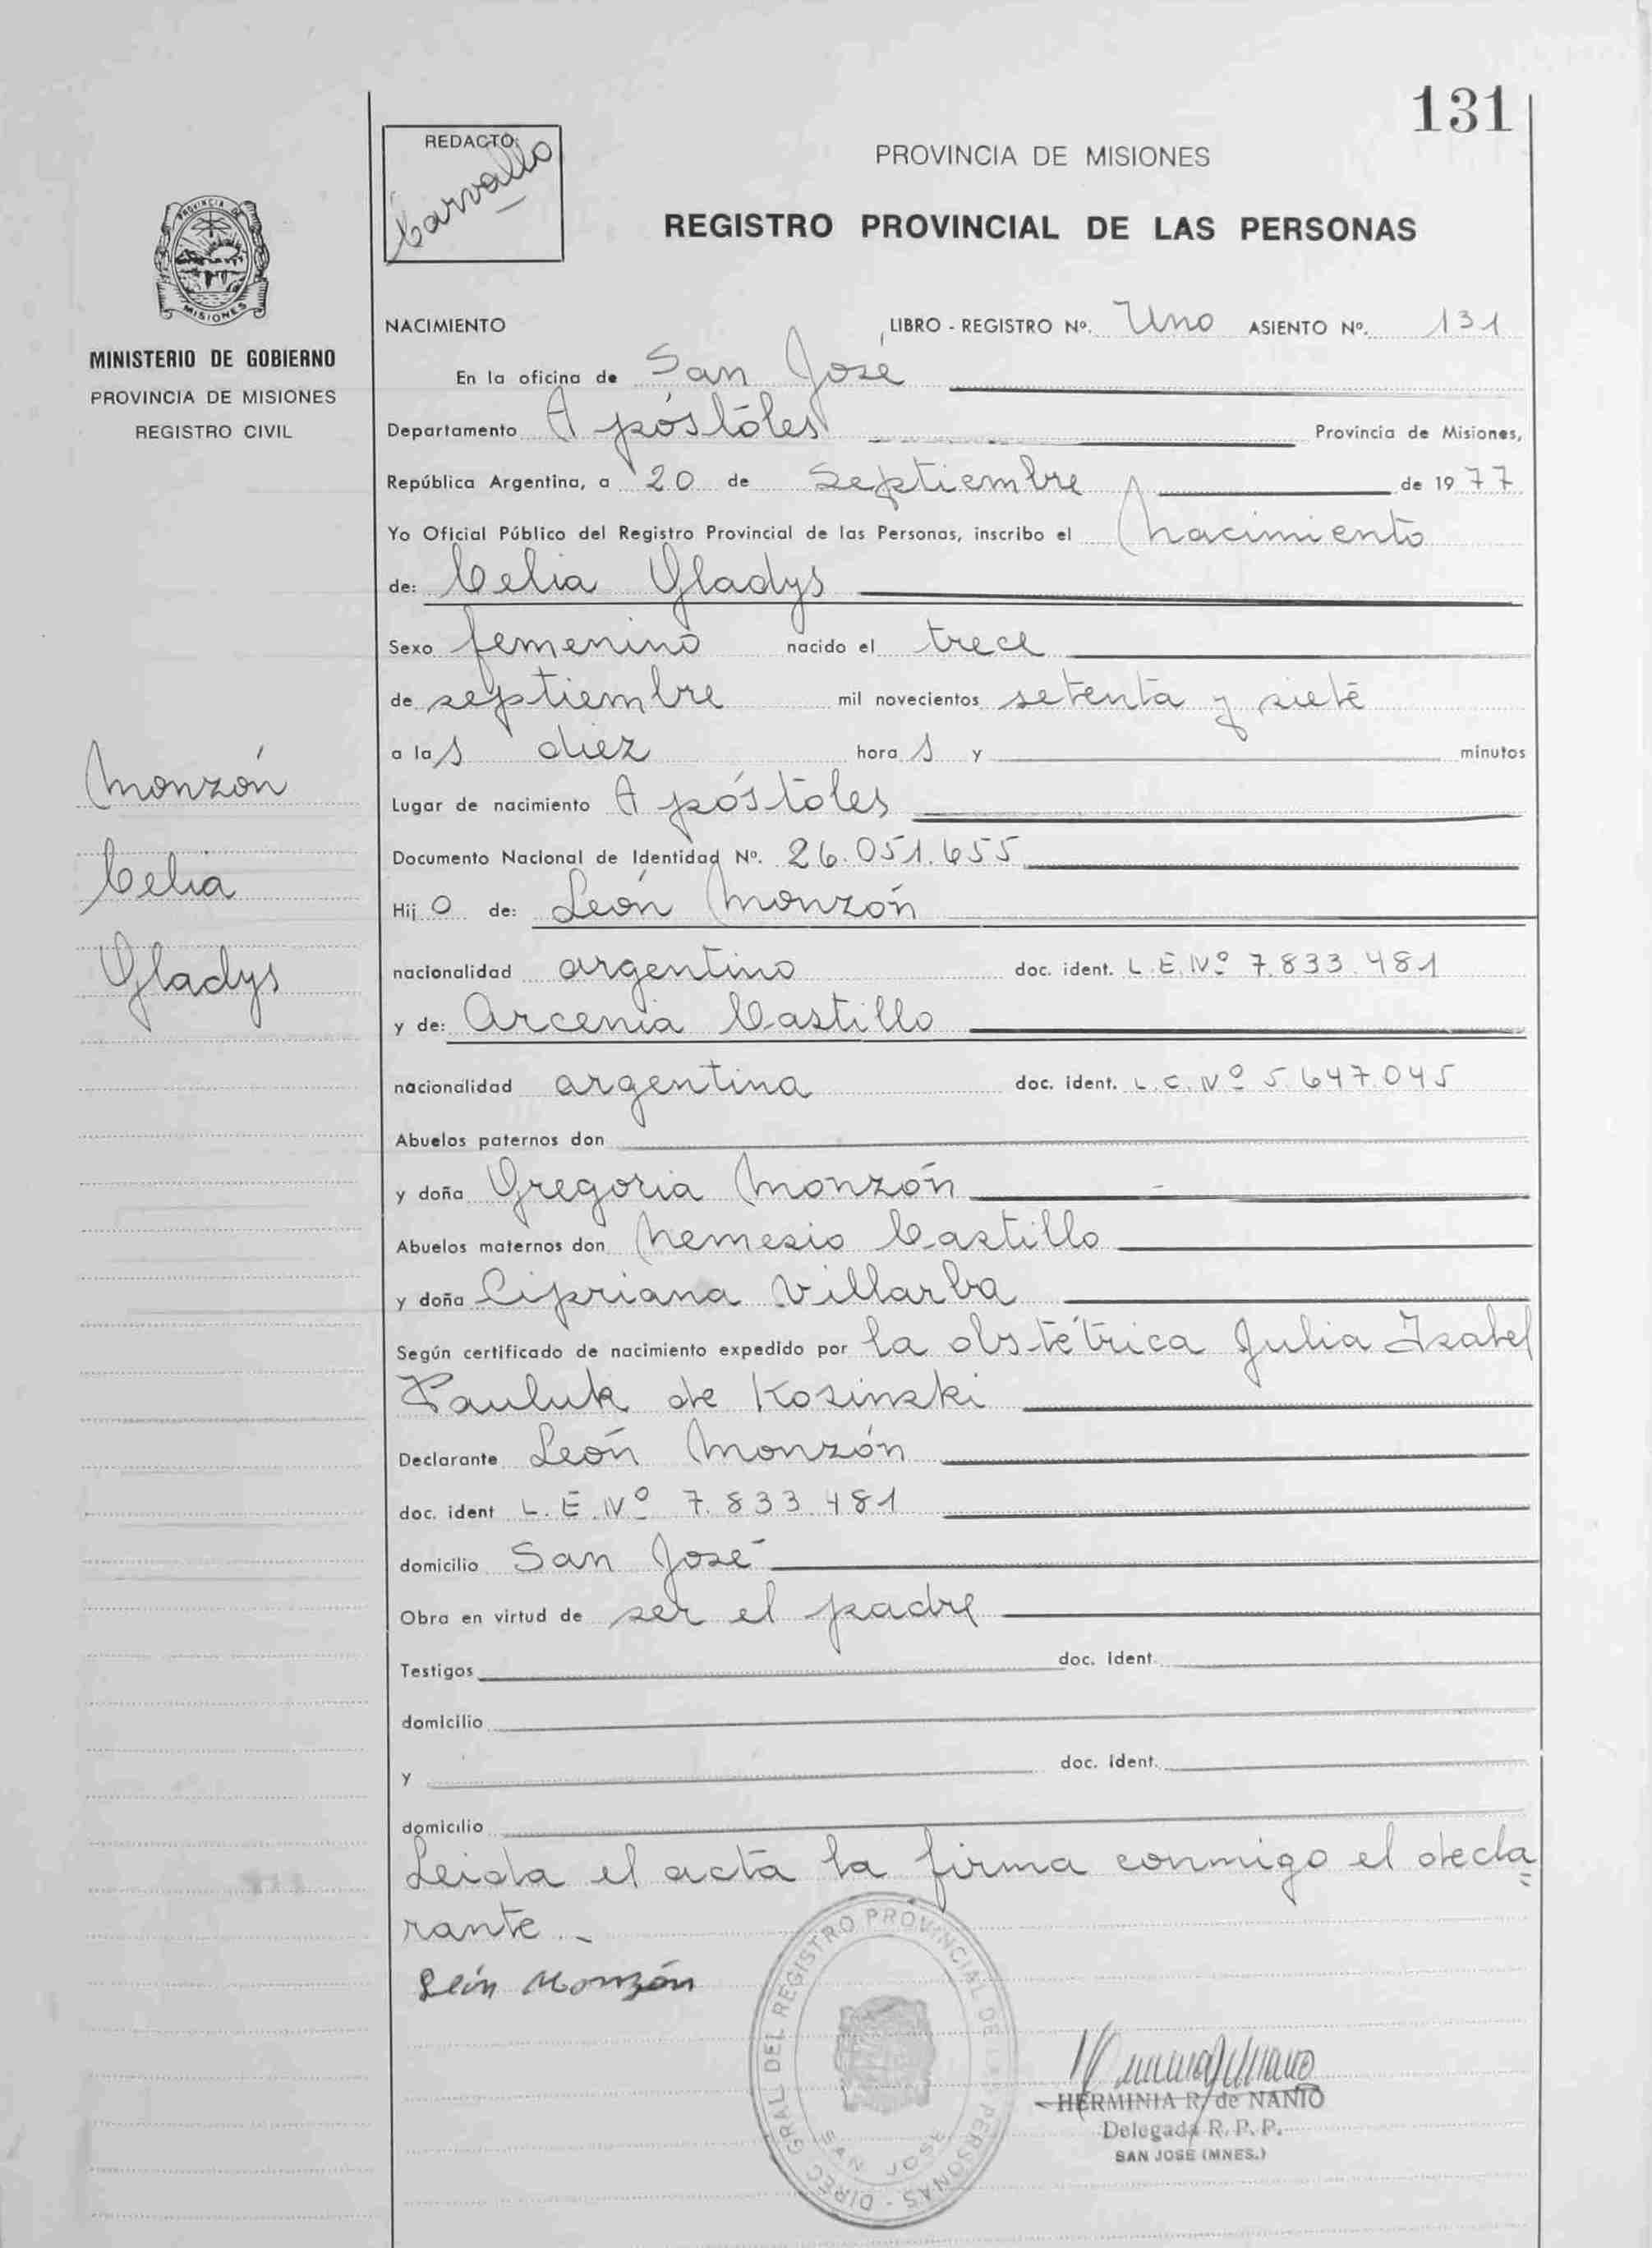 131
REDACTO:
Carvallo
PROVINCIA DE MISIONES
REGISTRO PROVINCIAL DE LAS PERSONAS
PROVINCIA DE
MISIONES
MINISTERIO DE GOBIERNO
PROVINCIA DE MISIONES
REGISTRO CIVIL
Monzón
Celia
Gladys
NACIMIENTO LIBRO - REGISTRO Nº. Uno ASIENTO Nº. 131
En la oficina de San José
Departamento Apóstóles Provincia de Misiones,
República Argentina, a 20 de Septiembre de 1977
Yo Oficial Público del Registro Provincial de las Personas, inscribo el nacimiento
de: Celia Gladys
Sexo femenino nacido el trece
de septiembre mil novecientos setenta y siete
a las diez horas y minutos
Lugar de nacimiento Apóstoles
Documento Nacional de Identidad Nº. 26.051.655
Hijo de: León Monzón
nacionalidad argentino doc. ident. L.E.Nº 7.833.481
y de: Arcenia Castillo
nacionalidad argentina doc. ident. L.C.Nº 5.647.045
Abuelos paternos don
y doña Gregoria Monzón
Abuelos maternos don Nemesio Castillo
y doña Cipriana Villarba
Según certificado de nacimiento expedido por la obstétrica Julia Isabel
Pauluk de Kosinski
Declarante León Monzón
doc. ident L.E.Nº 7.833.481
domicilio San José
Obra en virtud de ser el padre
Testigos doc. ident.
domicilio
y doc. ident.
domicilio
Leida el acta la firma conmigo el decla=
rante.-
León Monzón
DIREC. GRAL DEL REGISTRO PROVINCIAL DE LAS PERSONAS -
SAN JOSE
HERMINIA R. de NANTO
Delegada R. P. P.
SAN JOSE (MNES.)